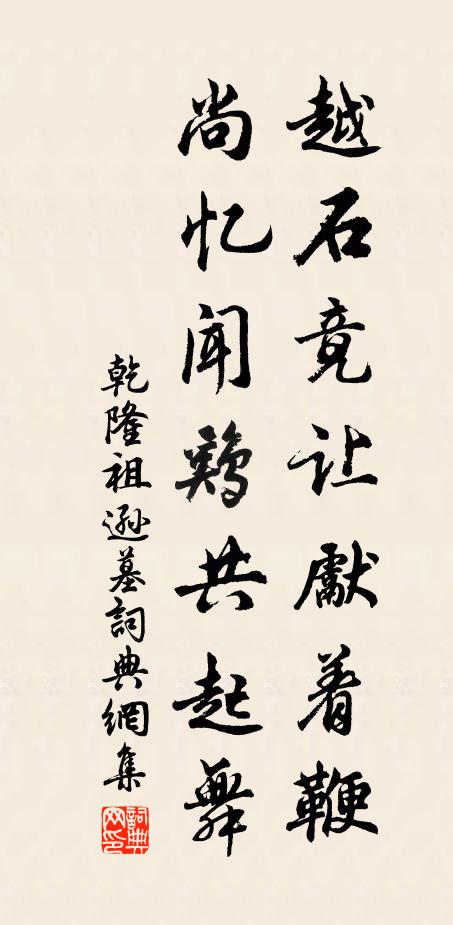 越石竟让獻着鞭
尚忆闻鷄共起舞
乾隆祖遜墓詞典網集
詞典网印